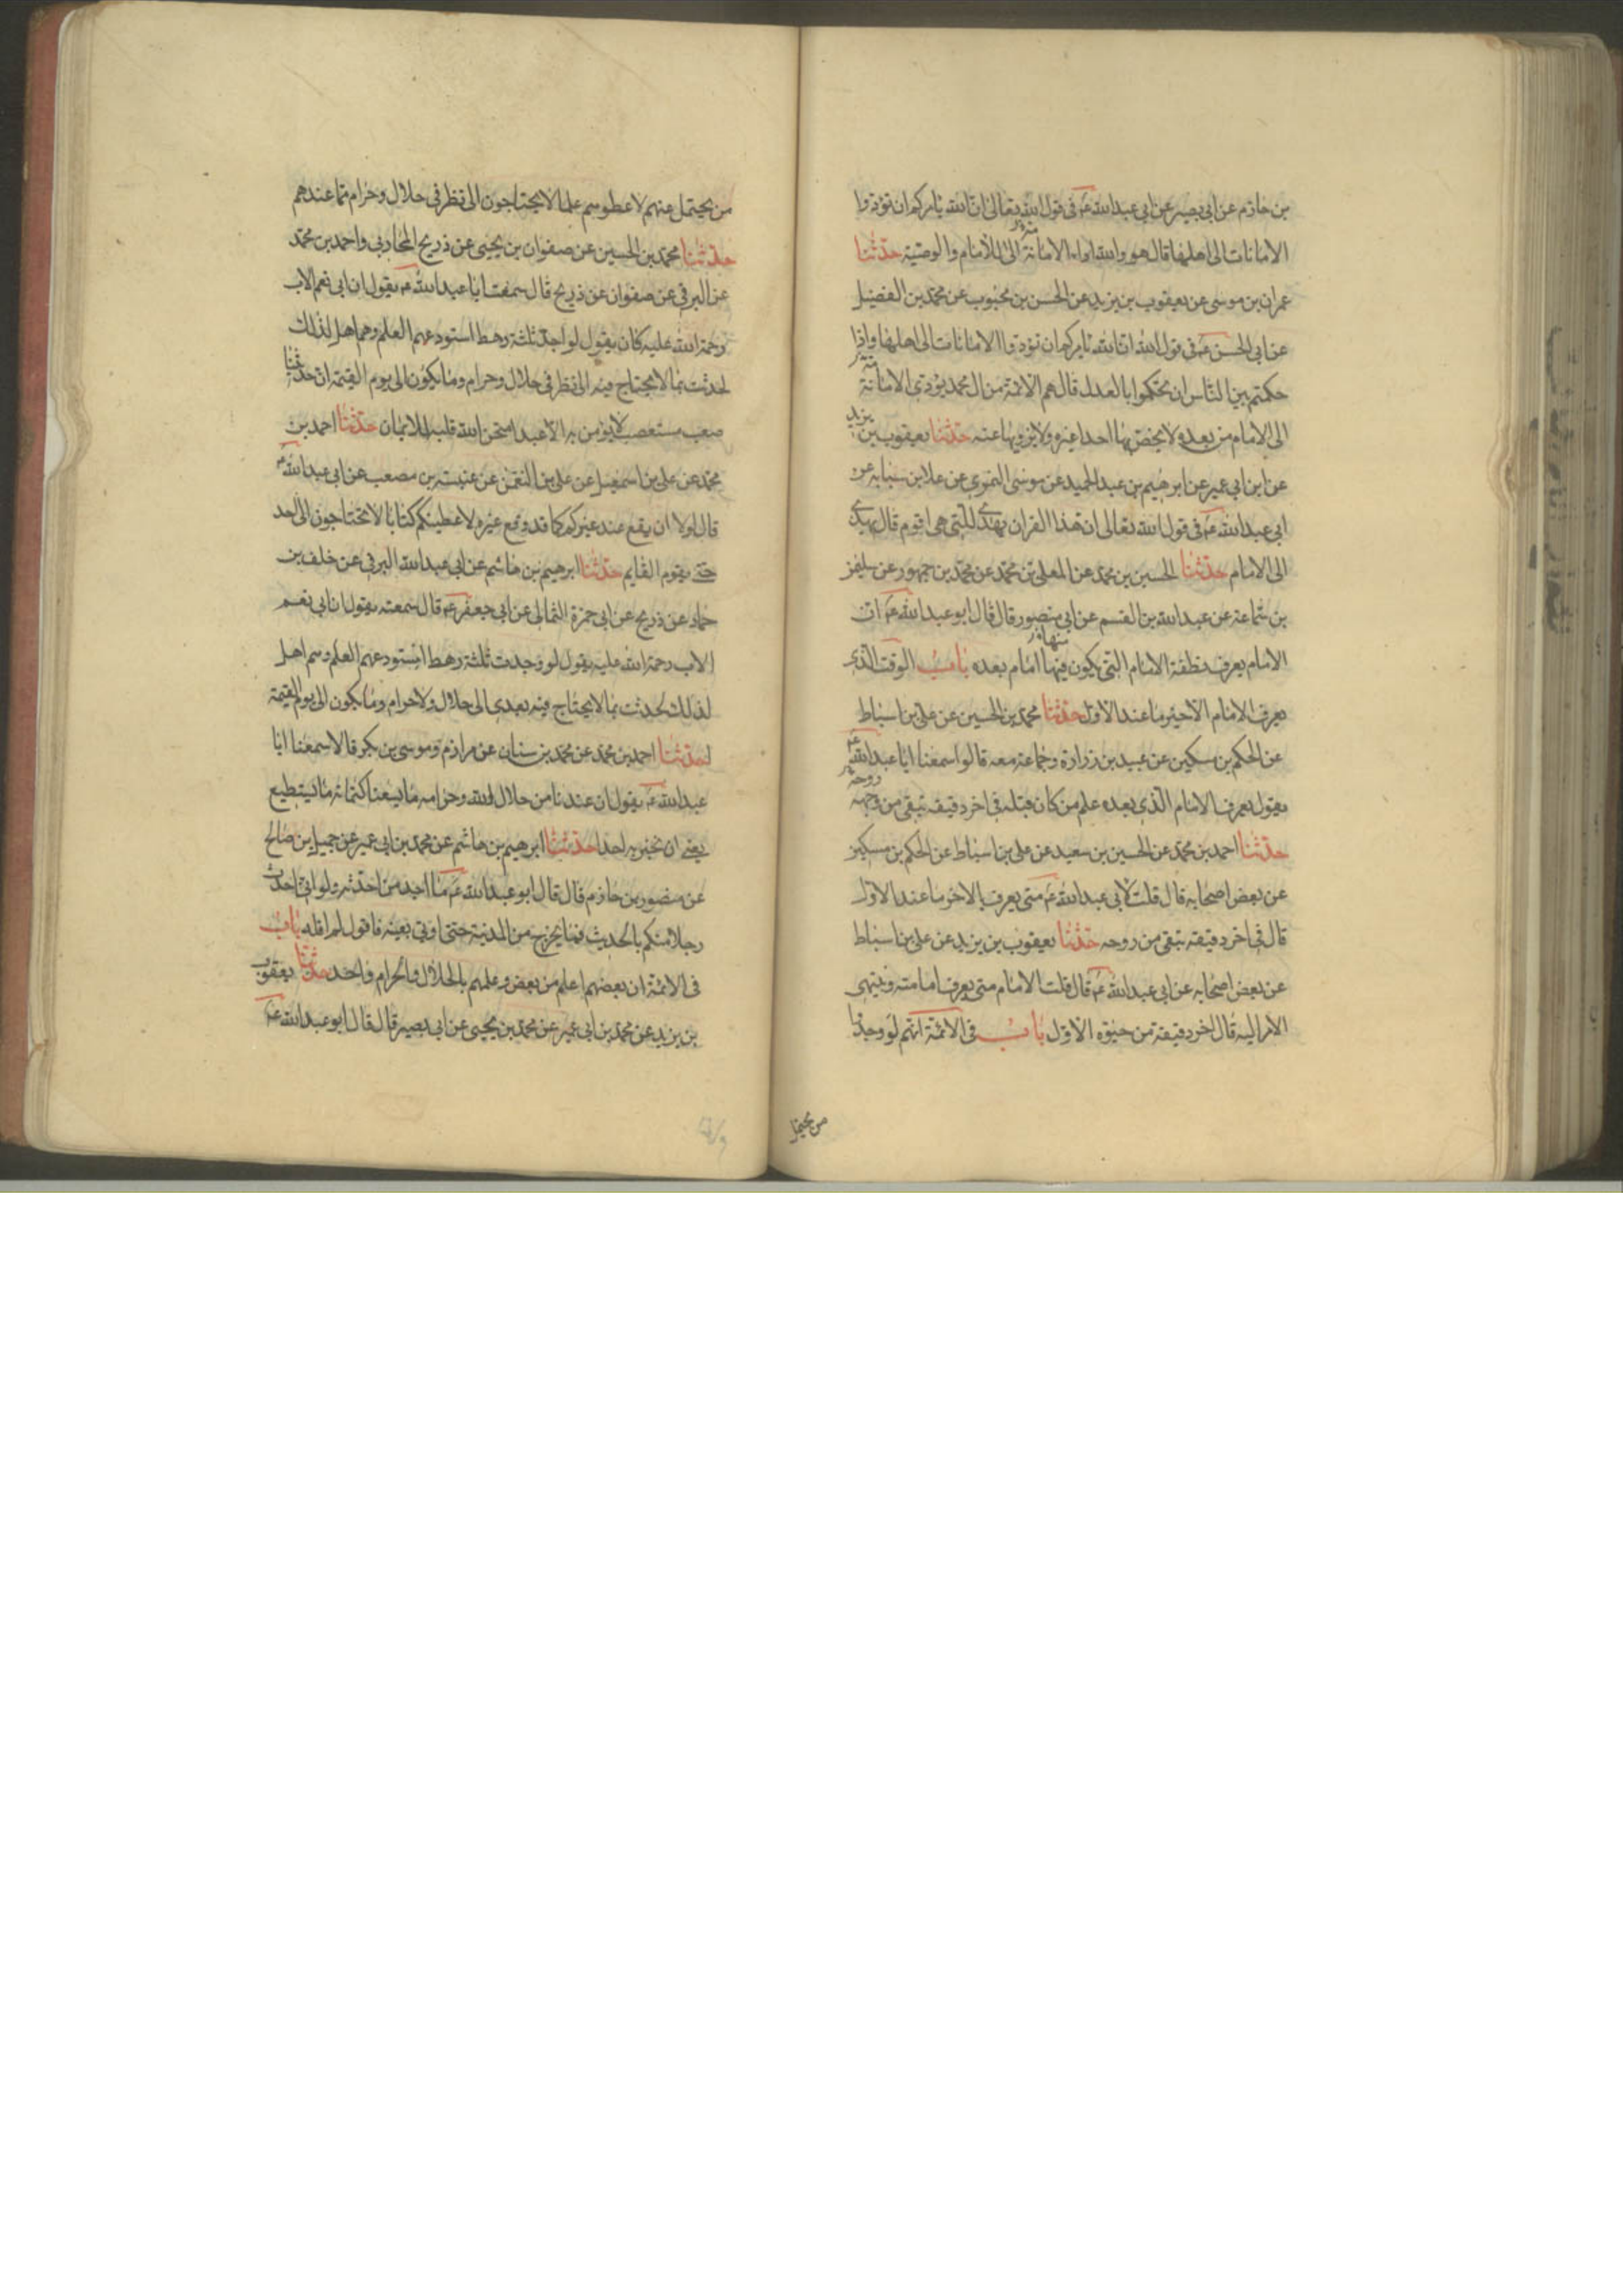 بن حازم عن ابى بصير عن ابى عبد الله عۤ فى قول الله تعالى ان الله يامركم ان تؤدوا
الامانات الى اهلها قال هو والله اداء الامانة الى الامام والوصية حدثنا
عمران بن موسى عن يعقوب بن يزيد عن الحسن بن محبوب عن محمد بن الفضيل
عن ابى الحسن عۤ فى قول الله ان الله يامركم ان تؤدوا الامانات الى اهلها واذا
حكمتم بين الناس ان تحكموا بالعدل قال هم الائمة من ال محمد يؤدى الامانة
الى الامام من بعده لا يخص بها احدا غيره ولا يزويها عنه حدثنا يعقوب بن يزيد
عن ابن ابى عمير عن ابرهيم بن عبد الحميد عن موسى النميرى عن علا بن سيابه عن
ابى عبد الله عۤ فى قول الله تعالى ان هذا القران يهدى للتى هى اقوم قال يهدى
الى الامام حدثنا الحسين بن محمد عن المعلى بن محمد عن محمد بن جمهور عن سليمن
بن سماعة عن عبد الله بن القسم عن ابى منصور قال قال ابو عبد الله عۤ ان
الامام يعرف نطفة الامام التى يكون فيها امام بعده باب الوقت الذى
يعرف الامام الاخير ما عند الاول حدثنا محمد بن الحسين عن على بن اسباط
عن الحكم بن مسكين عن عبيد بن زرارة وجماعة معه قالوا سمعنا ابا عبد الله عۤ
يقول يعرف الامام الذى بعده علم من كان قبله فى اخر دقيقة تبقى من روحه
حدثنا احمد بن محمد عن الحسين بن سعيد عن على بن اسباط عن الحكم بن مسكين
عن بعض اصحابه قال قلت لابى عبد الله عۤ متى يعرف الاخر ما عند الاول
قال فى اخر دقيقة تبقى من روحه حدثنا يعقوب بن يزيد عن على بن اسباط
عن بعض اصحابه عن ابى عبد الله عۤ قال قلت الامام متى يعرف امامته وينتهى
الامر اليه قال اخر دقيقة من حيوة الاول باب فى الائمة انهم لو وجدوا
من يحتمل
من يحتمل عنهم لاعطوهم علما لا يحتاجون الى نظر فى حلال وحرام مما عندهم
حدثنا محمد بن الحسين عن صفوان بن يحيى عن ذريح المحاربى واحمد بن محمد
عن البرقى عن صفوان عن ذريح قال سمعت ابا عبد الله عۤ يقول ان ابى نعم الاب
رحمة الله عليه كان يقول لو اجد ثلثة رهط استودعهم العلم وهم اهل لذلك
لحدثت بما لا يحتاج فيه الى نظر فى حلال وحرام وما يكون الى يوم القيمة ان حديثنا
صعب مستصعب لا يؤمن به الا عبد امتحن الله قلبه للايمان حدثنا احمد بن
محمد عن على بن اسمعيل عن على بن النعمن عن عنبسة بن مصعب عن ابى عبد الله عۤ
قال لولا ان يقع عند غيركم كما قد وقع غيره لاعطيتكم كتابا لا تحتاجون الى احد
حتى يقوم القايم حدثنا ابرهيم بن هاشم عن ابى عبد الله البرقى عن خلف بن
حماد عن ذريح عن ابى حمزة الثمالى عن ابى جعفر عۤ قال سمعته يقول ان ابى نعم
الاب رحمة الله عليه يقول لو وجدت ثلثة رهط استودعهم العلم وهم اهل
لذلك لحدثت بما لا يحتاج فيه بعدى الى حلال ولا حرام وما يكون الى يوم القيمة
حدثنا احمد بن محمد عن محمد بن سنان عن مرازم وموسى بن بكر قالا سمعنا ابا
عبد الله عۤ يقول ان عندنا من حلال الله وحرامه ما يسعنا كتمانه ما نستطيع
يعنى ان نخبر به احدا حدثنا ابرهيم بن هاشم عن محمد بن ابى عمير عن جميل بن صالح
عن منصور بن حازم قال قال ابو عبد الله عۤ ما اجد من احدثه ولو انى احدث
رجلا منكم بالحديث فما يخرج من المدينة حتى اوتى بعينه فاقول لم اقله باب
فى الائمة ان بعضهم اعلم من بعض وعلمهم بالحلال والحرام واحد حدثنا يعقوب
بن يزيد عن محمد بن ابى عمير عن محمد بن يحيى عن ابى بصير قال قال ابو عبد الله عۤ